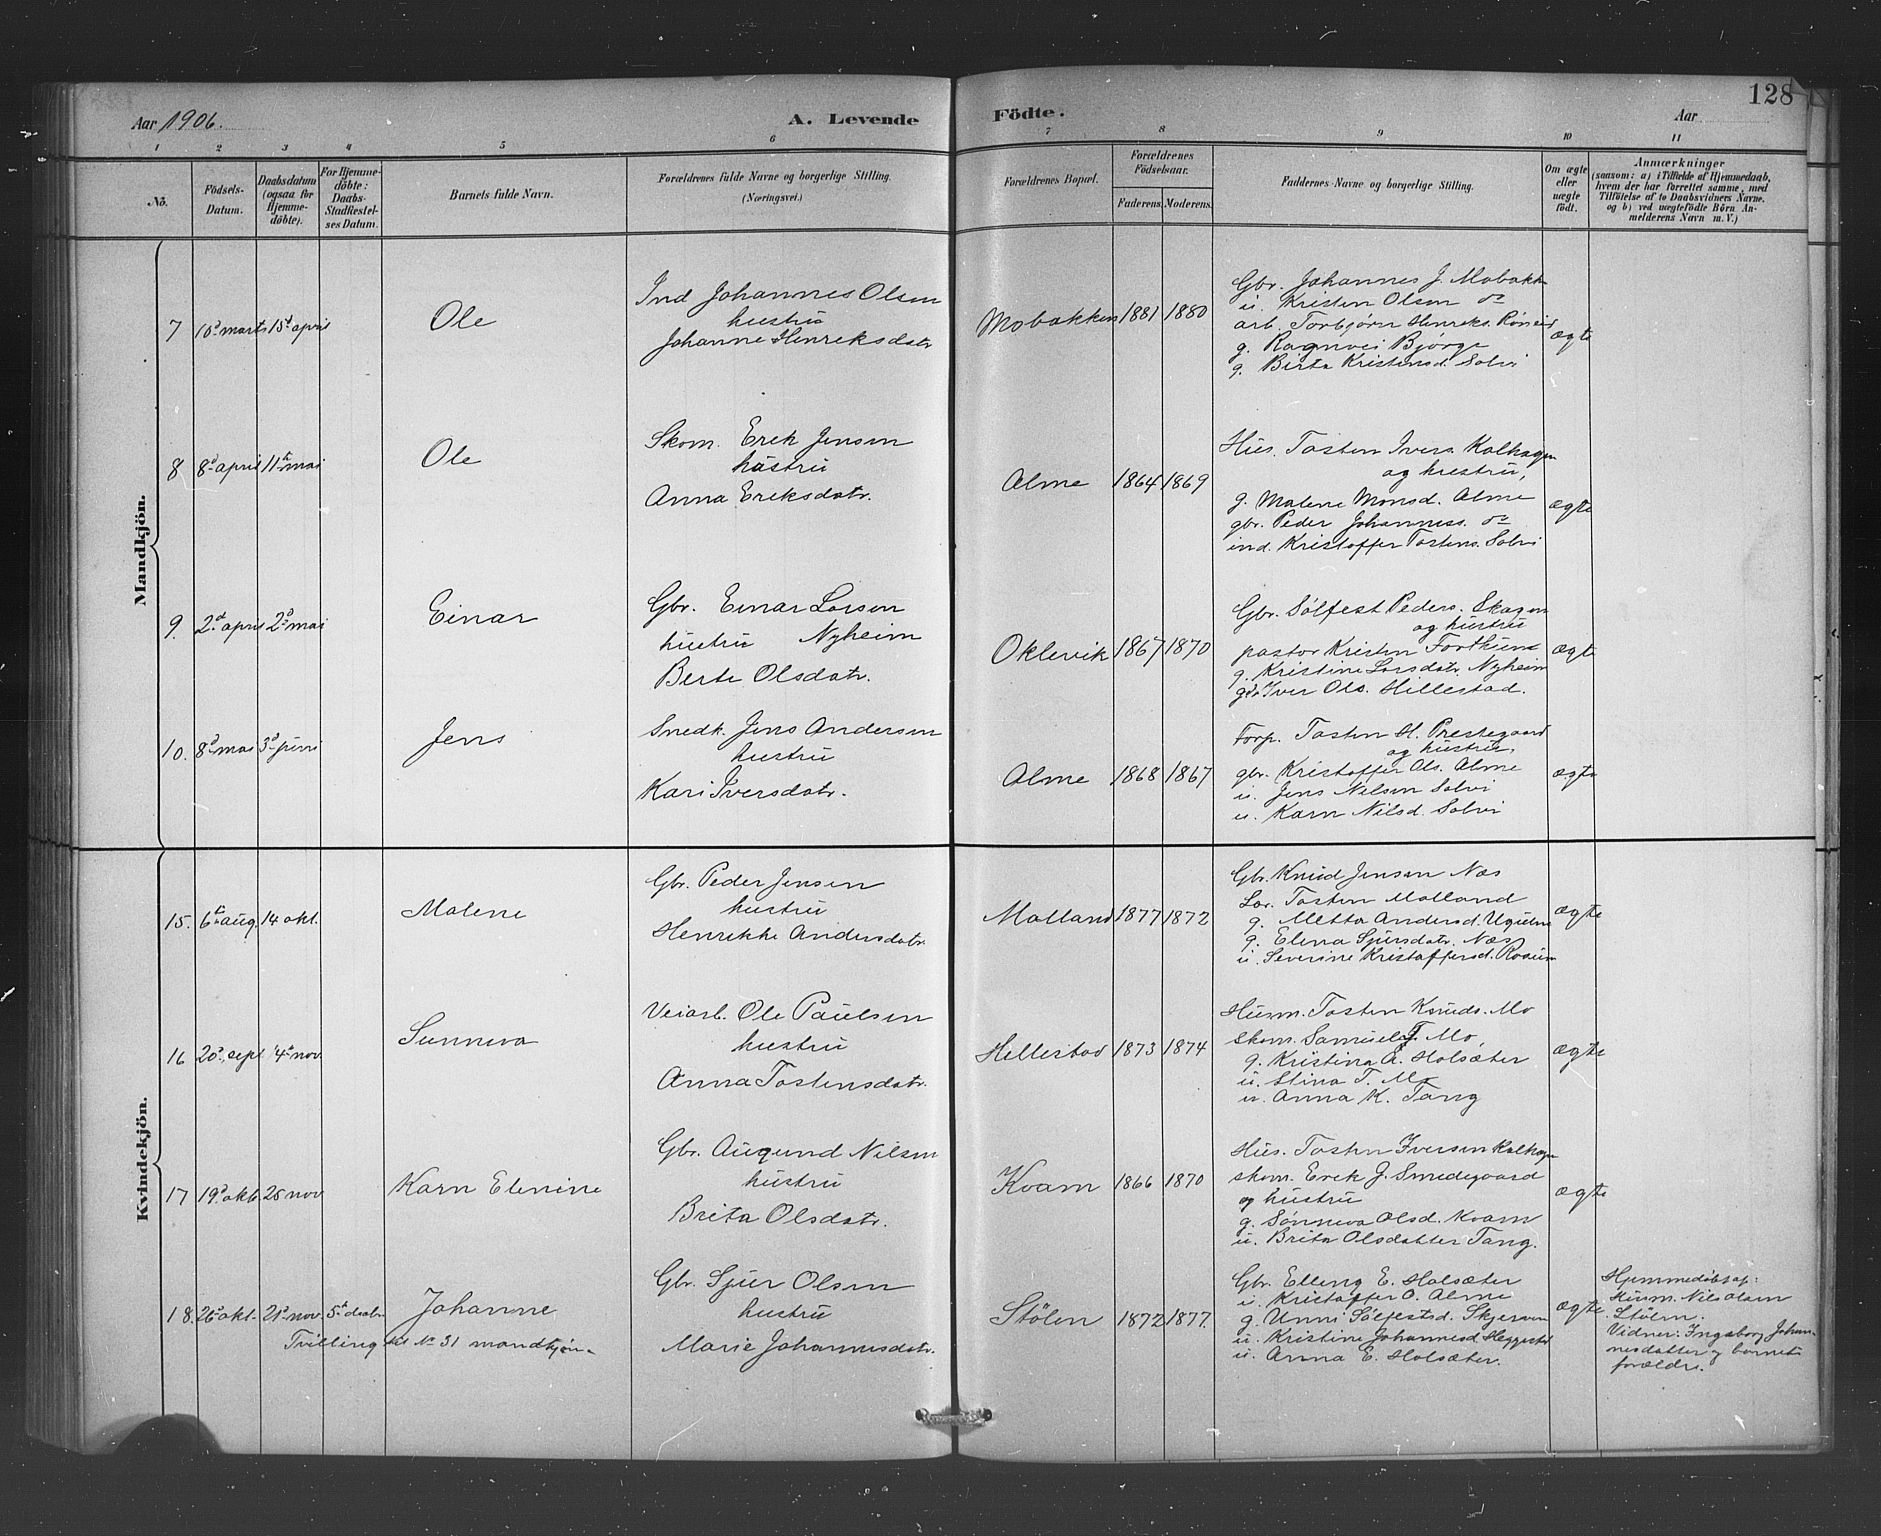 128
Aar 1906.
A. Levende Födte.
Aar
1 2 3 4 5 6 7 8 9 10 11
No.
Födsels-Datum.
Daabsdatum (ogsaa for Hjemme-döbte).
For Hjemme-döbte: Daabs-Stadfæstel-ses Datum.
Barnets fulde Navn.
Forældrenes fulde Navne og borgerlige Stilling. (Næringsvei.)
Forældrenes Bopæl.
Forældrenes Födselsaar.
Faderens. Moderens.
Faddernes Navne og borgerlige Stilling.
Om ægte eller uægte født.
Anmærkninger
(saasom: a) i Tilfælde af Hjemmedaab,
hvem der har forrettet samme, med
Tilföielse af to Daabsvidners Navne.
og b) ved uægtefödte Börn An-
melderens Navn m. V.)
Mandkjön.
7 15d marts 15d april
Ole
Ind Johannes Olsen
hustru
Johanne Henreksdatr
Mobakken 1881 1880
Gbr. Johannes J. Mobakken
u. Kristen Olsen do
arb. Torbjørn Henreks. Røneid
g. Ragnvei Bjørge
g. Birta Kristensd. Solvi
ægte
8 8d april 11t mai
Ole
Skom. Erek Jensen
hustru
Anna Ereksdatr.
Alme 1864 1869
Hus. Tosten Ivers. Kalhagen
og hustru,
g. Malene Monsd. Alme
gbr. Peder Johanness. do
ind. Kristoffer Tostens. Solvi
ægte
9. 2d april 2d mai
Einar
Gbr. Einar Larsen
hustru Nyheim
Berte Olsdatr.
Oklevik 1867 1870
Gbr. Sölfest Peders. Skagen
og hustru
pastor Kristen Forthun
g. Kristine Larsdatr. Nyheim
gbr Iver Ols. Hillestad.
ægte
10. 8d mai 3d juni
Jens
Snedk. Jens Andersen
hustru
Kari Iversdatr.
Alme 1868 1867
Forp. Tosten H. Prestegaard
og hustru,
gbr. Kristoffer Ols. Alme
u. Jens Nilsen Solvi
u. Karn Nilsd. Solvi
ægte
Kvindekjön.
15. 6t aug. 14 okt.
Malene
Gbr. Peder Jensen
hustru
Henrekke Andersdatr
Molland 1877 1872
Gbr. Knud Jensen Næs
Tosten Molland
g. Metta Andersd. Ugulene
g. Elena Sjursdatr. Næs
u. Severine Kristoffersd.
ægte
16 20d sept. 4d nov
Sunneva
Veiarb. Ole Paulsen
hustru
Anna Tostensdatr.
Hillestad 1873 1874
Husm. Tosten Knuds. Mo
Skom. Samuel T. Mo,
g. Kristina A. Holsæter
u. Stina T. Mo
u. Anna K. Tang
ægte
17 19d okt. 25 nov
Karn Elenine
Gbr. Augund Nilsen
hustru
Brita Olsdatr.
Kvam 1866 1870
Hus. Tosten Iversen Kalhagen
skom. Erek J. Smedegaard
og hustru
g. Sønneva Olsd. Kvam
u. Brita Olsdatter Tang.
ægte
18. 26d okt. 21d nov 5t decbr.
Johanne
Tvilling til No 31 mandkjøn.
Gbr. Sjur Olsen
hustru
Marie Johannesdatr.
Stölen 1872 1877.
Gbr. Elleng E. Holsæter
u. Kristoffer O. Alme
g. Unni Sölfestsd. Skjerven
u. Kristine Johannesd. Heggestad
u. Anna E. Holsæter.
ægte
Hjemmedöbt af:
Husm. Nils Olsen
Stölen.
Vidner: Ingeborg Johan-
nesdatter og barnets
forældre.